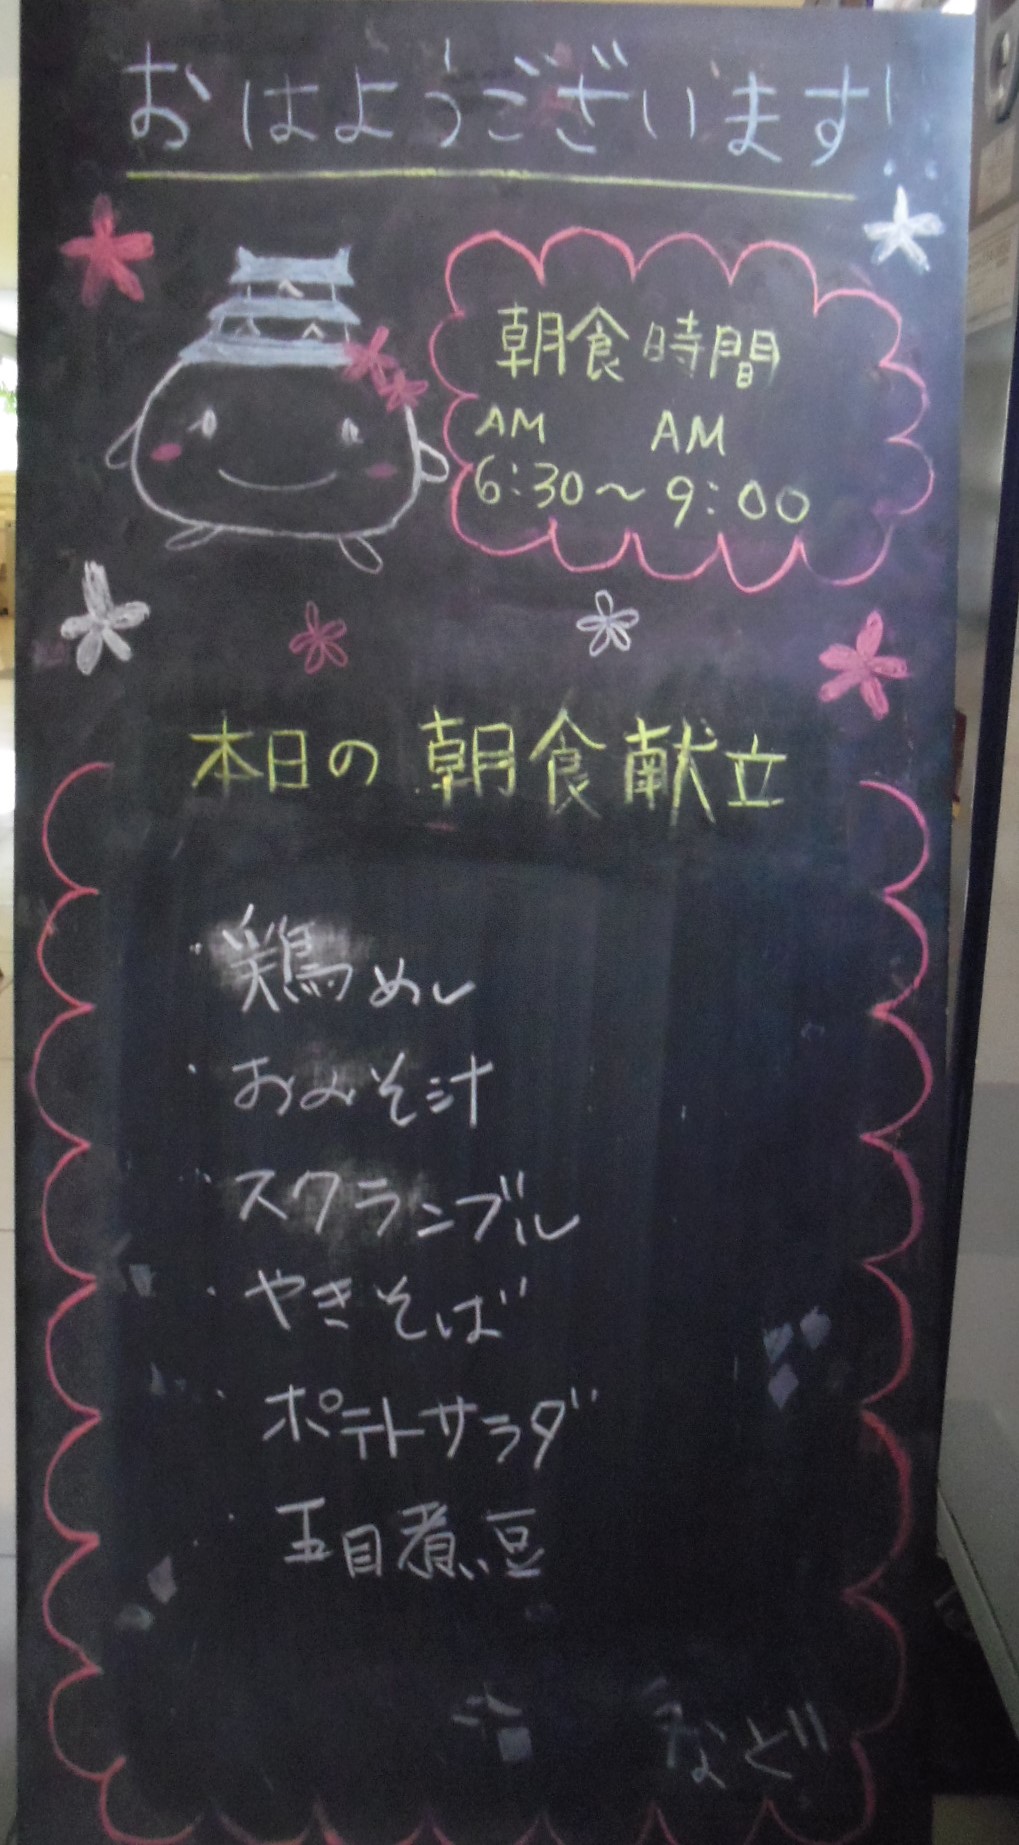 おはようございます!!
朝食時間
AM AM
6:30～9:00
本日の朝食献立
・鶏めし
・おみそ汁
・スクランブル
・やきそば
・ポテトサラダ
・五目煮豆
など